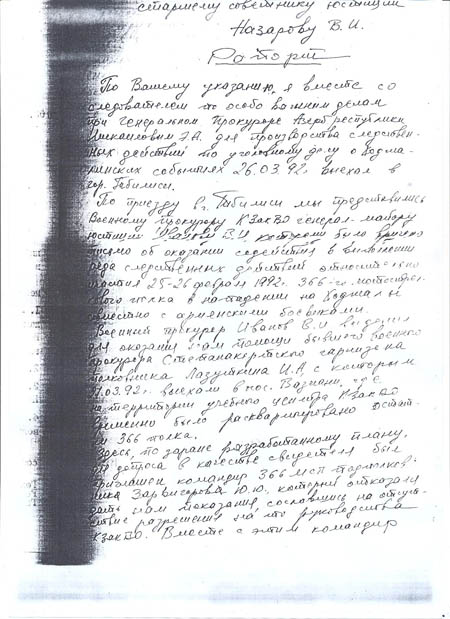 старшему советнику юстиции
Назарову В.И.
Рапорт
По Вашему указанию, я вместе со
следователем по особо важным делам
при Генеральном Прокуроре Азерб республики
для производства следствен-
ных действий по уголовному делу о Ходжа-
линских событиях 26.03.92г. выехал в
гор. Тбилиси.
По приезду в г. Тбилиси мы представились
Военному прокурору КЗакВО генерал-майору
юстиции Иванову В.И которому было вручено
письмо об оказании содействия в выполнении
ряда следственных действий относительно
участия 25-26 февраля 1992г. 366-го мотострел-
кового полка в нападении на Ходжалы
вместе с армянскими боевиками.
Военный прокурор Иванов В.И выделил
для оказания нам помощи бывшего военного
прокурора Степанакертского гарнизона
полковника Лазуткина И.А, с которым
03.92г. выехали в пос. Вазиани, где
на территории учебного центра КЗакВО
временно было расквартировано остат-
ки 366 полка.
Здесь, по заранее разработанному плану,
для допроса в качестве свидетеля был
приглашен командир 366 мсп подполков-
ник Зарвигоров Ю.Ю. который отказался
дать нам показания, сославшись на отсут-
ствие разрешения на то руководства
КЗакВО. Вместе с этим командир